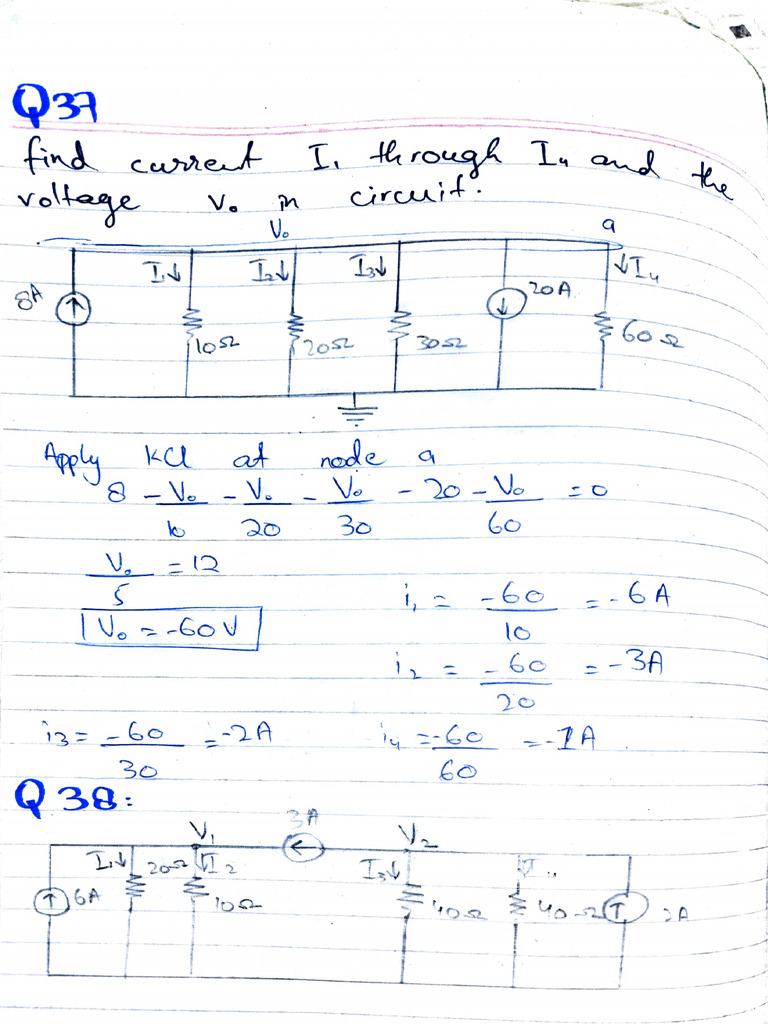 Q37
find current I₁ through I₄ and the
voltage V₀ in circuit.
V₀ a
I₁↓ I₂↓ I₃↓ ↓I₄
8A 20A
10Ω 20Ω 30Ω 60Ω
Apply KCl at node a
8 - V₀/10 - V₀/20 - V₀/30 - 20 - V₀/60 = 0
V₀/5 = 12
V₀ = -60V
i₁ = -60/10 = -6A
i₂ = -60/20 = -3A
i₃ = -60/30 = -2A i₄ = -60/60 = -1A
Q 38:
V₁ 3A V₂
I₁↓ 20Ω ↓I₂ I₃↓
6A 10Ω 40Ω 40Ω 2A